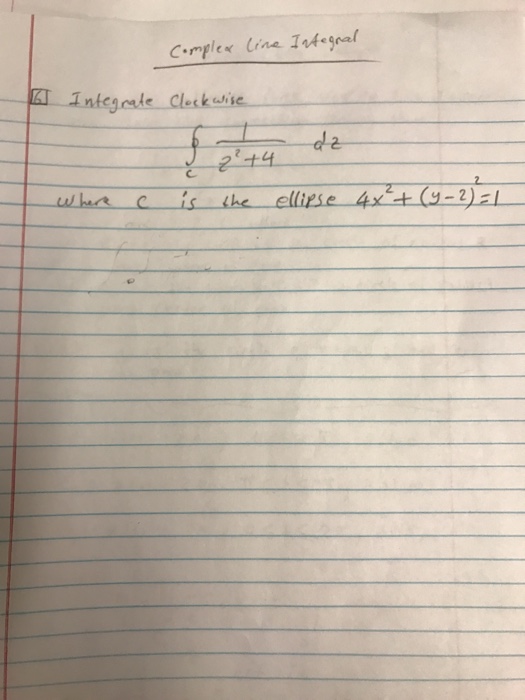 Complex Line Integral
6 Integrate Clockwise
∮c 1/(z²+4) dz
where c is the ellipse 4x²+(y-2)²=1